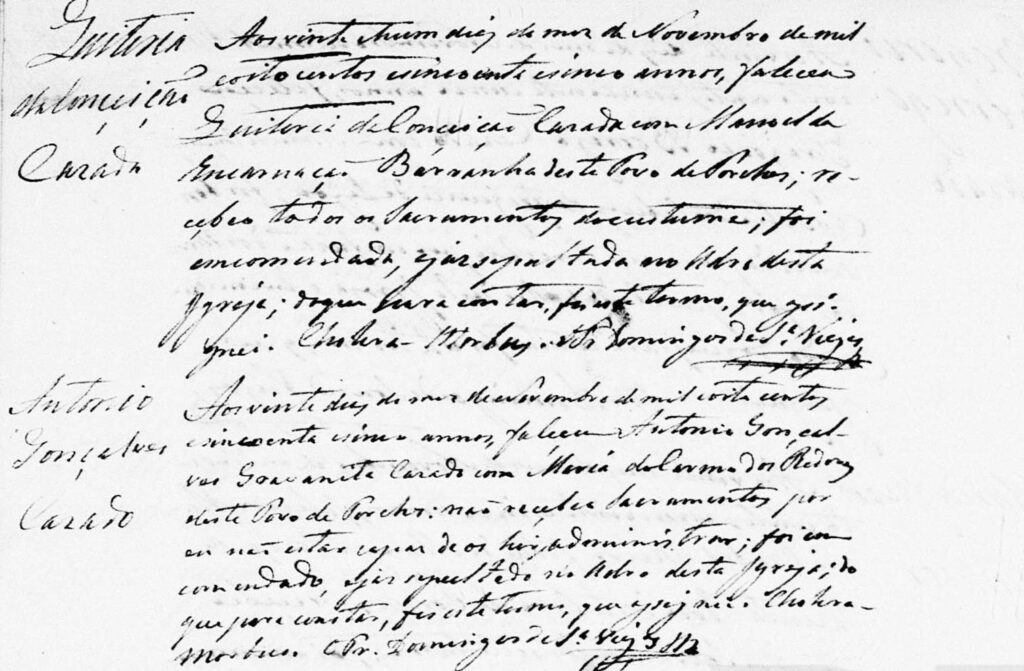 Quiteria
da Conceição
Cazada
Aos vinte e hum dias do mez de Novembro de mil
e oito centos e sincoente e sinco annos, faleceu
Quiteria da Conceicaõ Cazada com Manoel da
Encarnação Barranha deste Povo de Porches; re-
çebeo todos os Sacramentos do custume; foi
emcomendada, e jáz sepultada no Adro desta
Ygreja; do que para constar, fis este termo, que asi-
gnei. Cholera-Morbus. O Pr. Domingos de Sª
Antonio
Gonçalves
Cazado
Aos vinte dias do mez de Novembro de mil e oito centos
e sincoenta e sinco annos, faleceu Antonio Gonçal-
ves Gravanita Cazado com Maria do Carmo dos
deste Povo de Porches: naõ recebeo Sacramentos por
eu naõ estar capaz de os hir administrar; foi em
comendado, e jáz sepultado no Adro desta Ygreja; do
que para constar, fis este termo, que asignei. Cholera-
Morbus. O Pr. Domingos de Sª